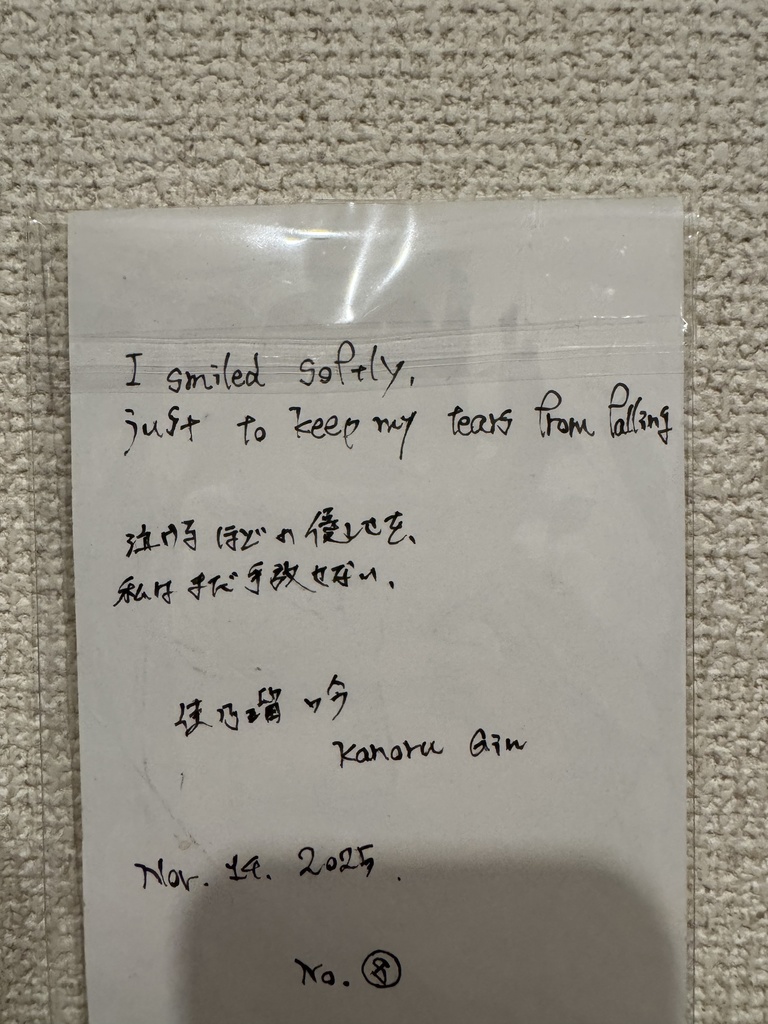 I smiled softly,
just to keep my tears from falling
泣けるほどの優しさを、
私はまだ手放せない。
佳乃瑠 吟
Kanoru Gin
Nov. 14. 2025.
No. ⑧